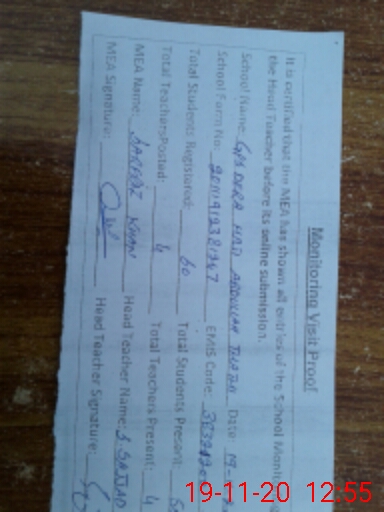 Monitoring Visit Proof
It is certified that the MEA has shown all entries of the School Monitoring
the Head Teacher before its online submission.
School Name: GPS DERA HAJI ABDULLAH Date: 19-
School Form No: EMIS Code:
Total Students Registered: 60 Total Students Present:
Total Teachers Posted: 4 Total Teachers Present: 4
MEA Name: SARFRAZ KHAN Head Teacher Name: S. SAJJAD
MEA Signature: Head Teacher Signature:
19-11-20 12:55